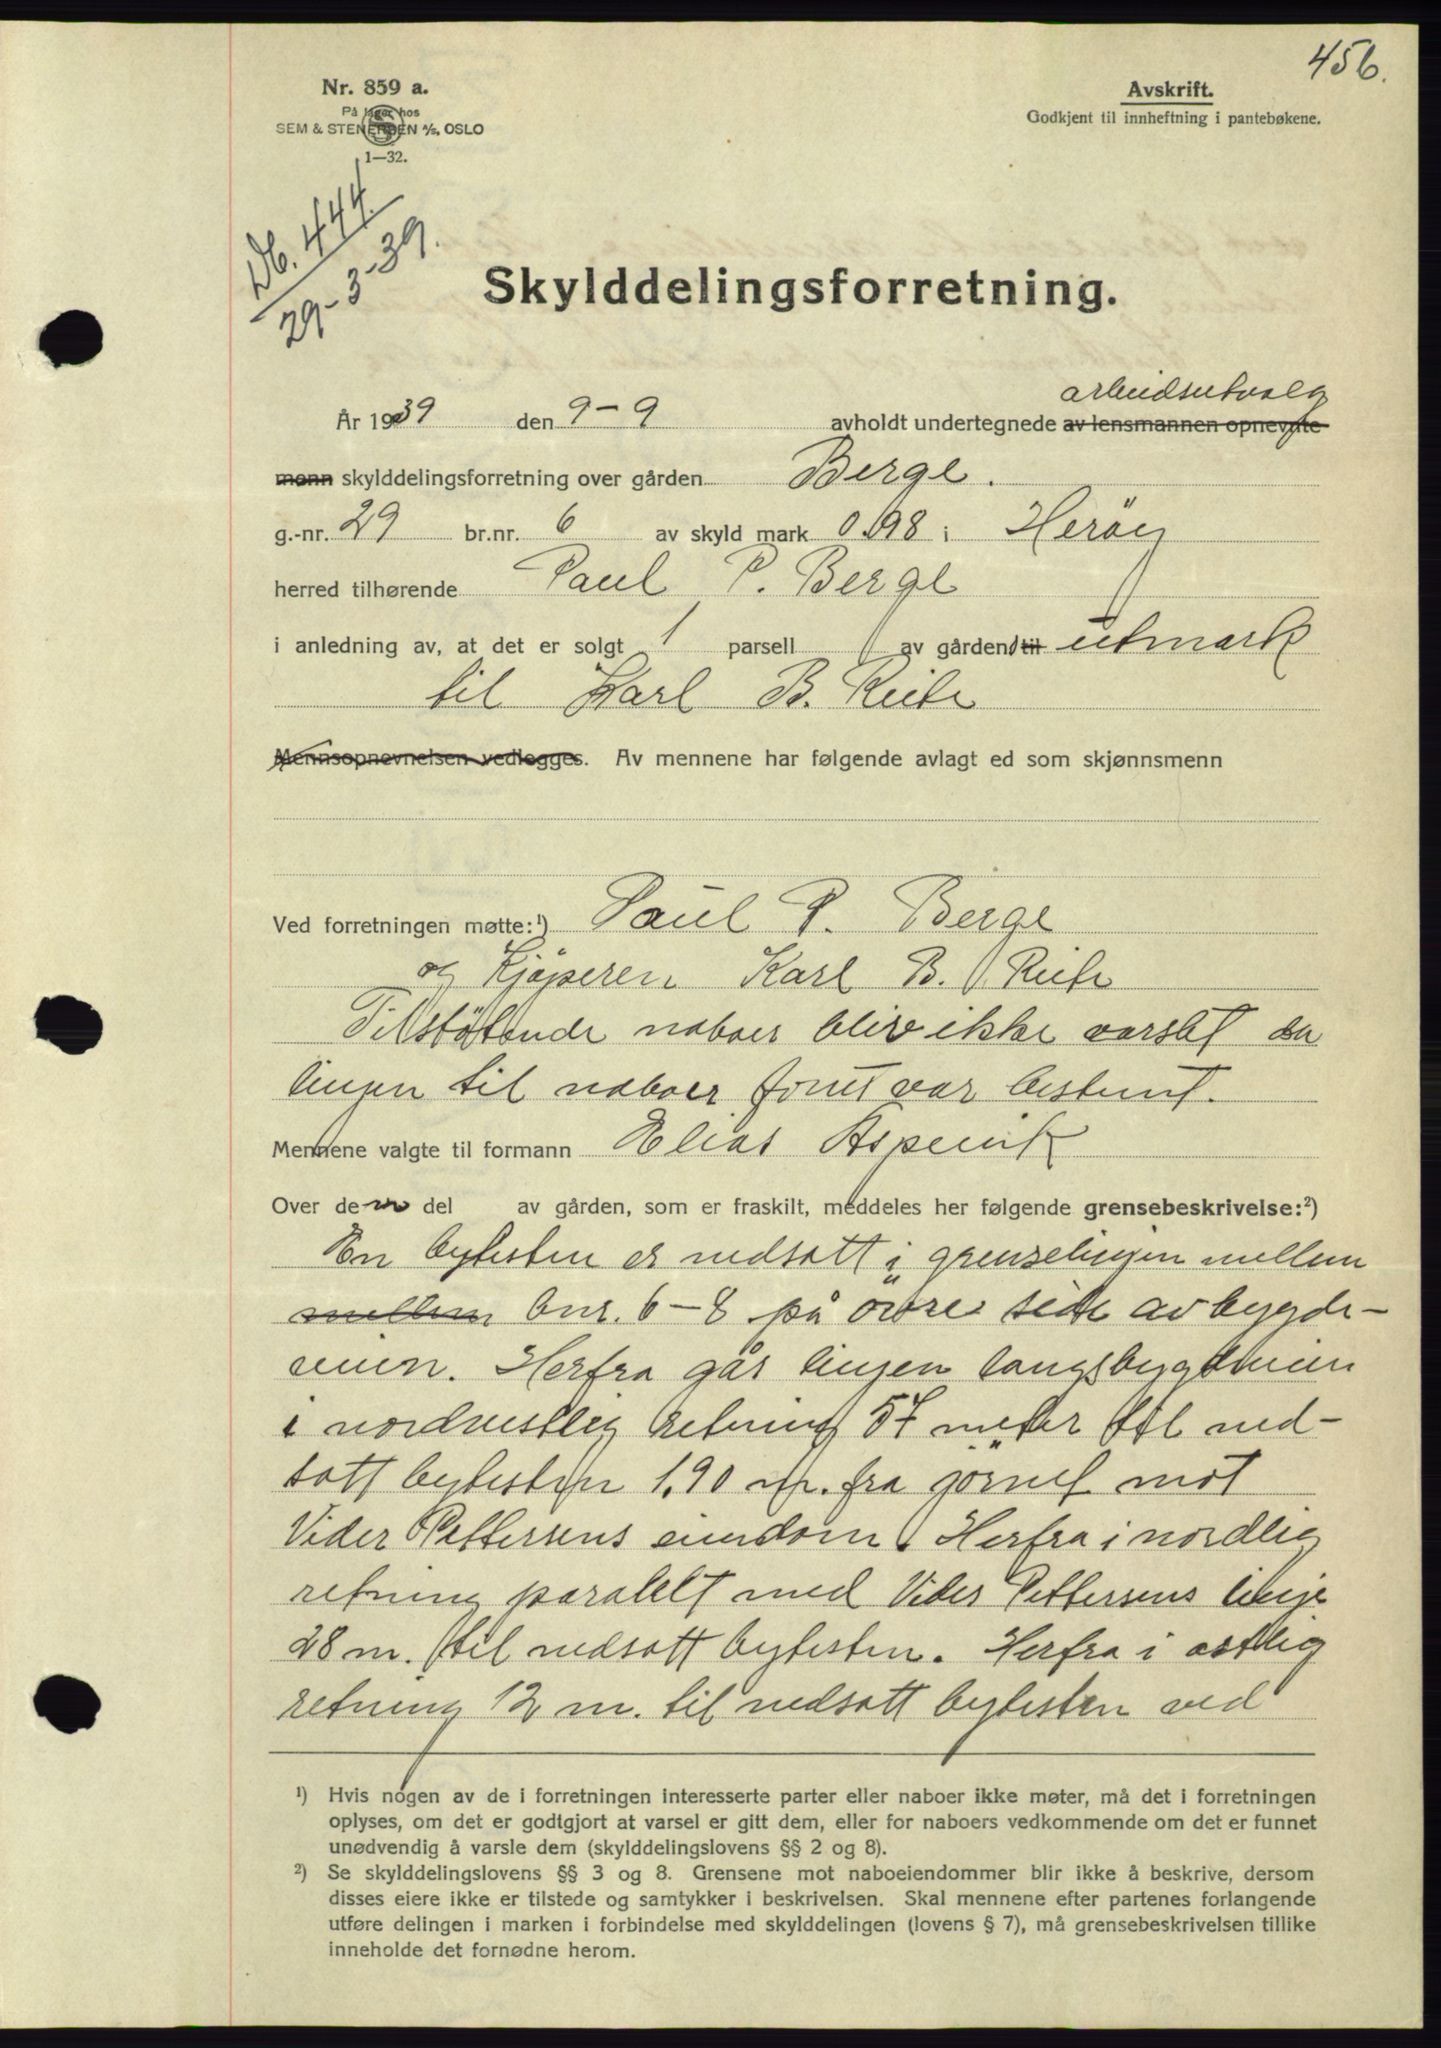 456.
Nr. 859 a.
På lager hos
SEM & STENERSEN A/S, OSLO
1—32.
Avskrift.
Godkjent til innheftning i pantebøkene.
Db. 444
29-3-39.
Skylddelingsforretning.
arbeidsutvalg
År 1939 den 9-9 avholdt undertegnede av lensmannen opnevnte
menn skylddelingsforretning over gården Berge.
g.-nr. 29 br.nr. 6 av skyld mark 0.98 i Heröy
herred tilhørende Paul P. Berge
i anledning av, at det er solgt 1 parsell av gårdens til utmark
til Karl B. Reite
Mennsopnevnelsen vedlegges. Av mennene har følgende avlagt ed som skjønnsmenn
Ved forretningen møtte:¹) Paul P. Berge
og Kjöperen Karl B. Reite
Tilstötende naboer blir ikke varslet da
linjen til naboer forut var bestemt.
Mennene valgte til formann Elias Aspevik
Over den del av gården, som er fraskilt, meddeles her følgende grensebeskrivelse:²)
En bytesten er nedsatt i grenselinjen mellem
mellem bnr. 6-8 på övre side av bygde-
veien. Herfra går linjen langs bygdeveien
i nordvestlig retning 57 meter til ned-
satt bytesten 1,90 m. fra gjöret mot
Vider Pettersens eiendom. Herfra i nordlig
retning paralelt med Vider Pettersens linje
28 m. til nedsatt bytesten. Herfra i östlig
retning 12 m. til nedsatt bytesten ved
¹) Hvis nogen av de i forretningen interesserte parter eller naboer ikke møter, må det i forretningen
oplyses, om det er godtgjort at varsel er gitt dem, eller for naboers vedkommende om det er funnet
unødvendig å varsle dem (skylddelingslovens §§ 2 og 8).
²) Se skylddelingslovens §§ 3 og 8. Grensene mot naboeiendommer blir ikke å beskrive, dersom
disses eiere ikke er tilstede og samtykker i beskrivelsen. Skal mennene efter partenes forlangende
utføre delingen i marken i forbindelse med skylddelingen (lovens § 7), må grensebeskrivelsen tillike
inneholde det fornødne herom.